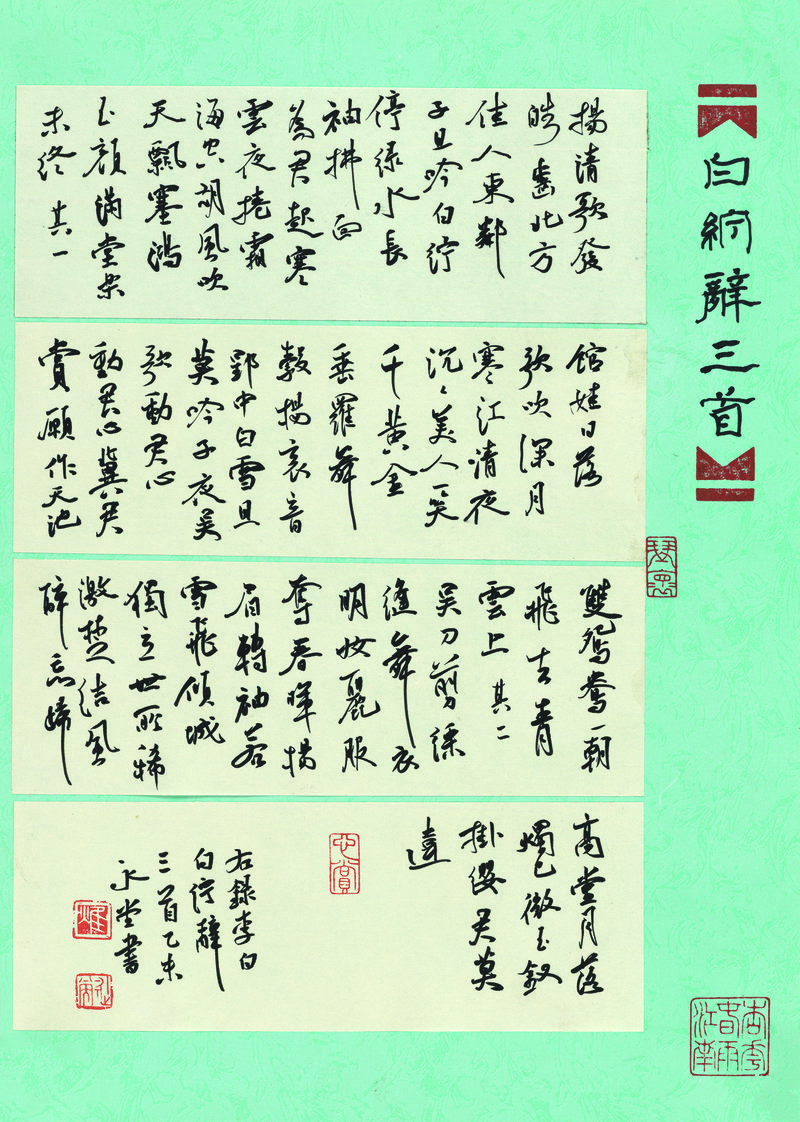 白紵辭三首
揚清歌發
皓齒北方
佳人東鄰
子且吟白紵
停綠水長
袖拂面
為君起寒
雲夜捲霜
海空胡風吹
天飄塞鴻
玉顏滿堂樂
未終 其一
館娃日落
歌吹深月
寒江清夜
沉〻美人一笑
千黃金
垂羅舞
縠揚哀音
郢中白雪且
莫吟子夜吳
歌動君心
動君心冀君
賞願作天池
雙鴛鴦一朝
飛去青
雲上 其二
吳刀剪綵
縫舞衣
明妝麗服
奪春暉揚
眉轉袖若
雪飛傾城
獨立世所稀
激楚結風
醉忘歸
高堂月落
燭已微玉釵
掛纓君莫
違
心賞
右錄李白
白紵辭
三首乙未
永堂書
杏花
春雨
江南